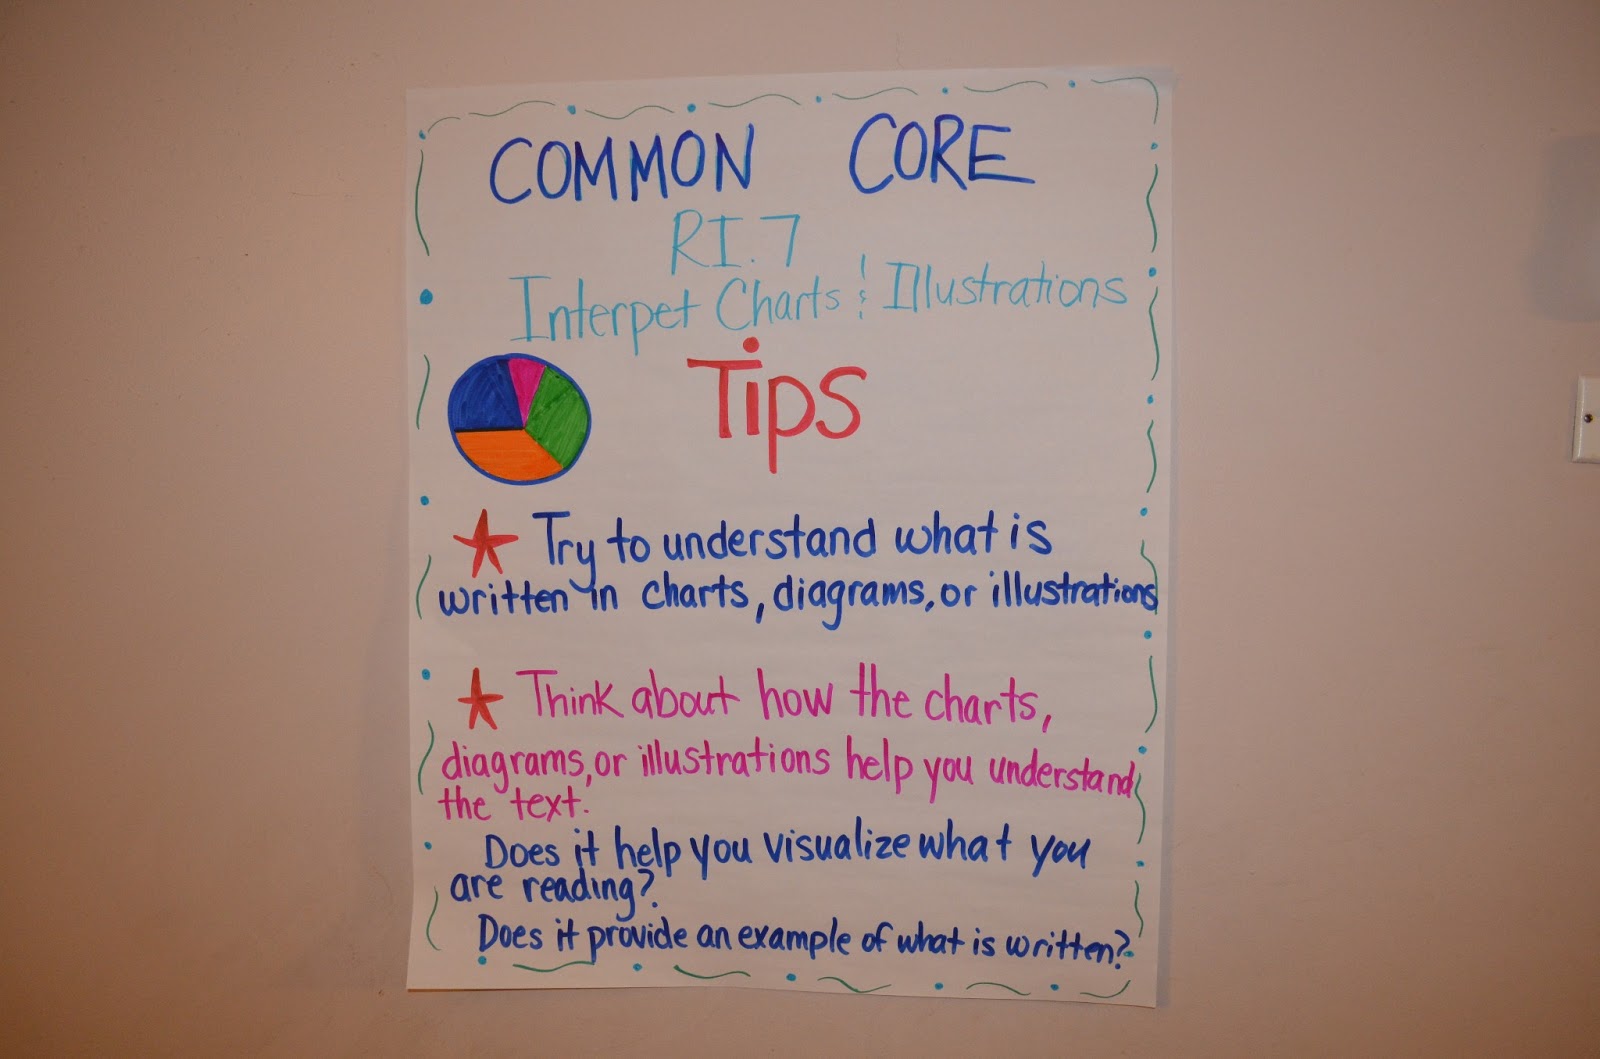 COMMON CORE
RI.7
Interpet Charts & Illustrations
Tips
Try to understand what is
written in charts, diagrams, or illustrations
Think about how the charts,
diagrams, or illustrations help you understand
the text.
Does it help you visualize what you
are reading?
Does it provide an example of what is written?